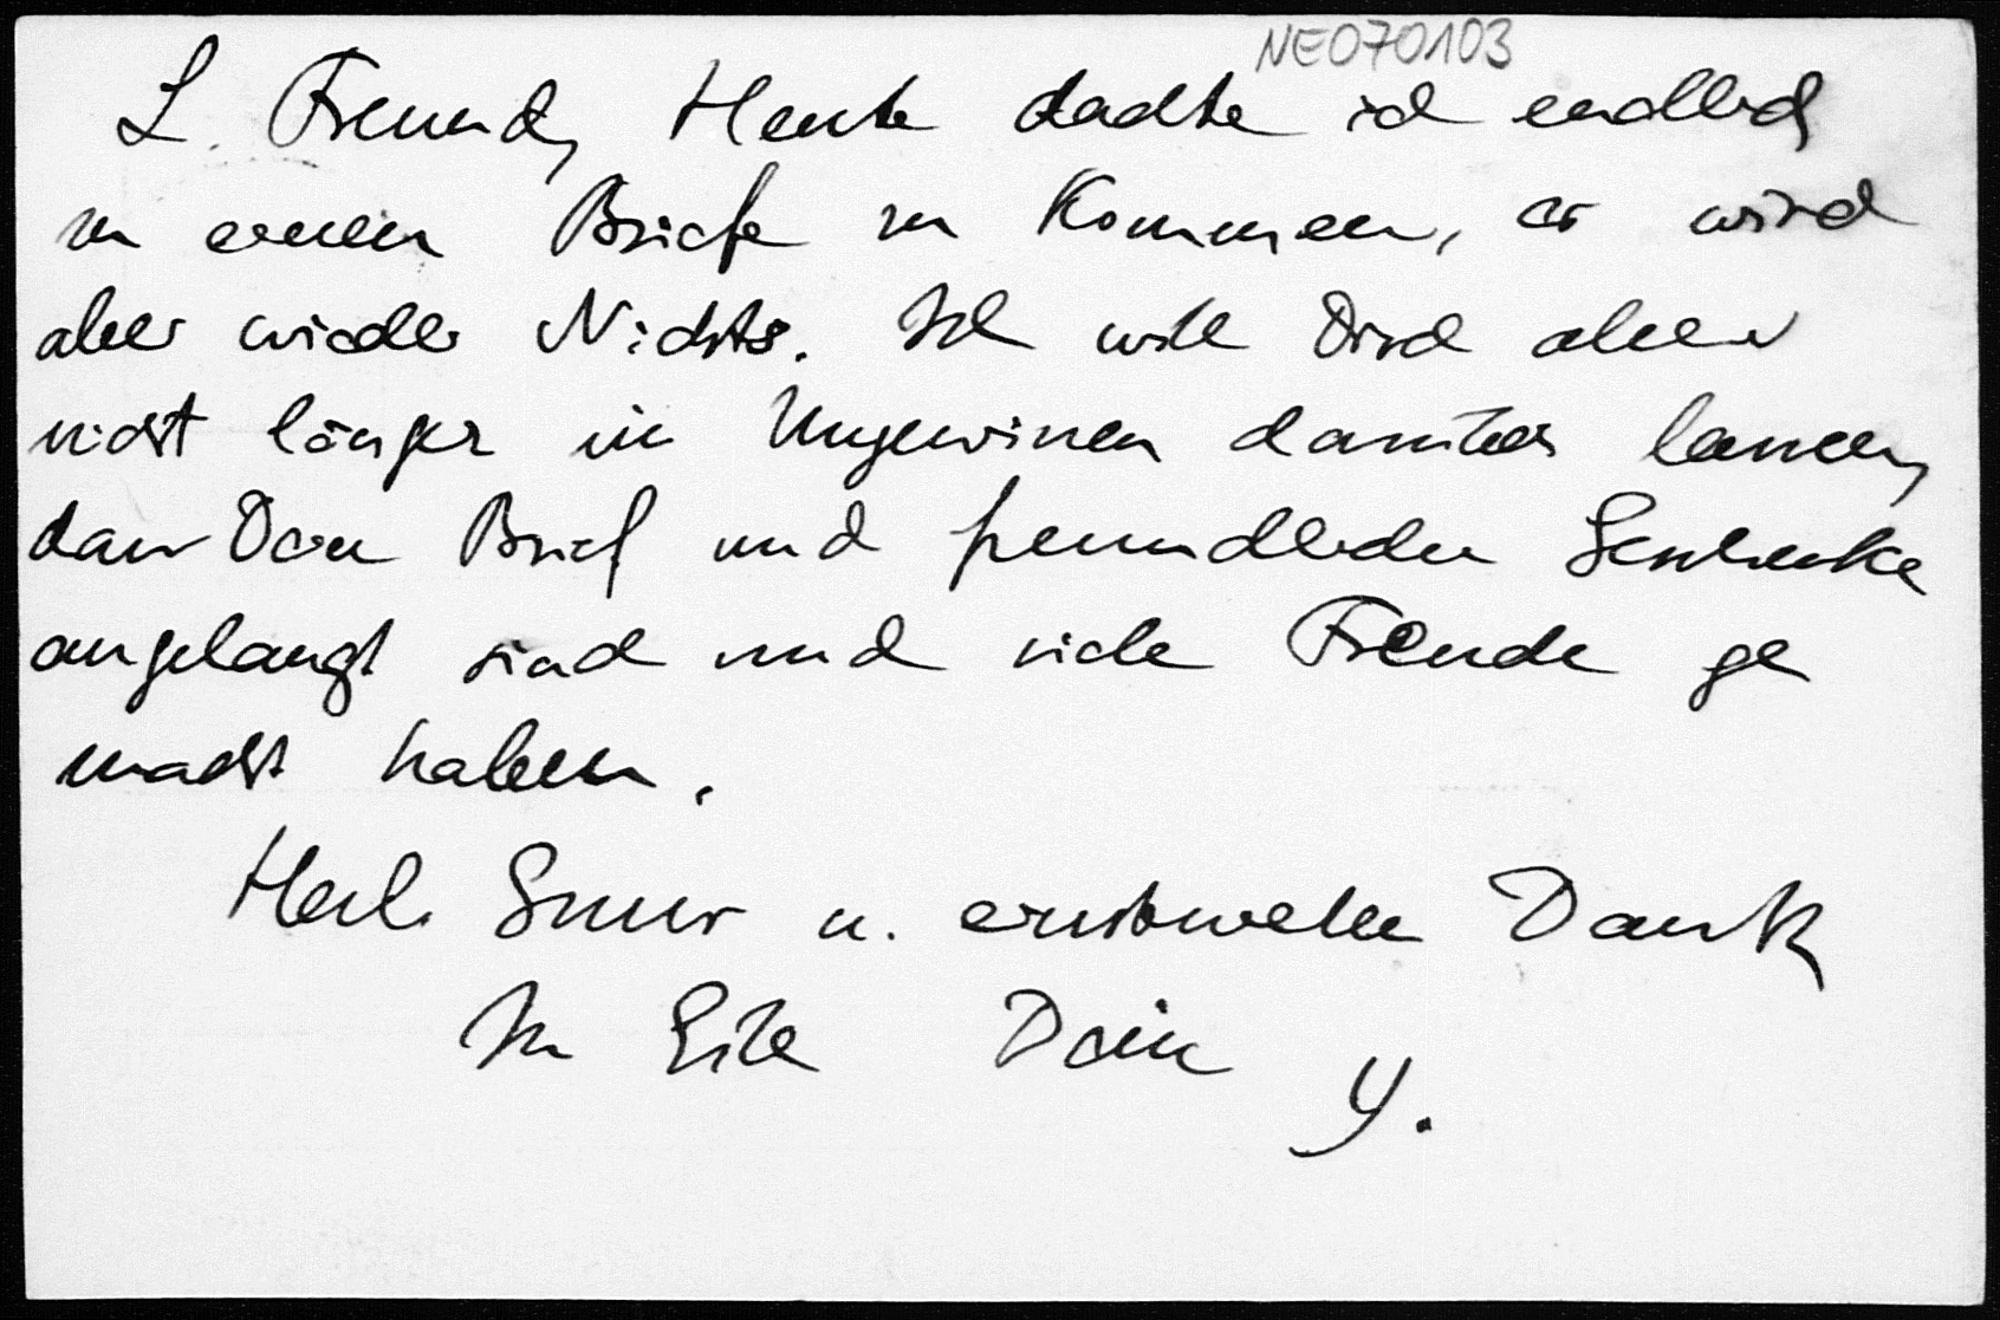 NE070103
L. Freund, Heute dachte ich endlich
zu einem Briefe zu kommen, es wird
aber wieder Nichts. Ich will Dich aber
nicht länger im Ungewissen darüber lassen,
dass Dein Brief und freundlichen Geschenke
angelangt sind und viele Freude ge
macht haben.
Herzl. Gruss u. einstweilen Dank
In Eile Dein Y.